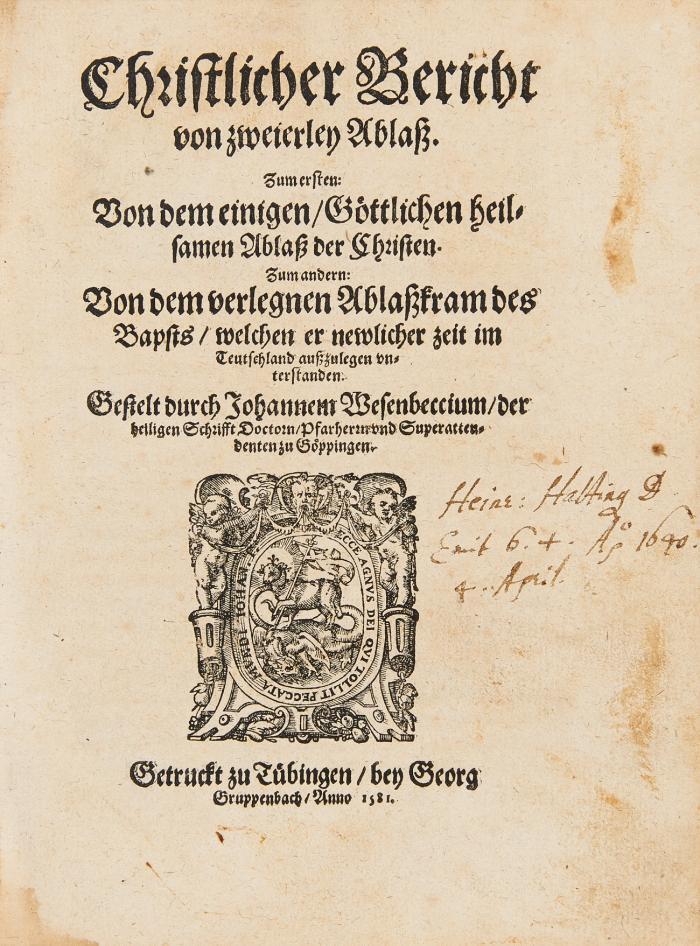 Christlicher Bericht
von zweierley Ablaß.
Zum ersten:
Von dem einigen/Göttlichen heil⸗
samen Ablaß der Christen.
Zum andern:
Von dem verlegnen Ablaßkram des
Bapsts / welchen er newlicher zeit im
Teutschland außzulegen vn⸗
terstanden.
Gestelt durch Johannem Wesenbeccium/der
heiligen Schrifft Doctorn/Pfarherrn vnd Superatten⸗
denten zu Göppingen.
ECCE AGNVS DEI QVI TOLLIT PECCATA MVNDI IOHAN
Heinr: Halting D
Emit 6. 4. Ao 1640.
4. April.
Getruckt zu Tübingen / bey Georg
Gruppenbach / Anno 1581.